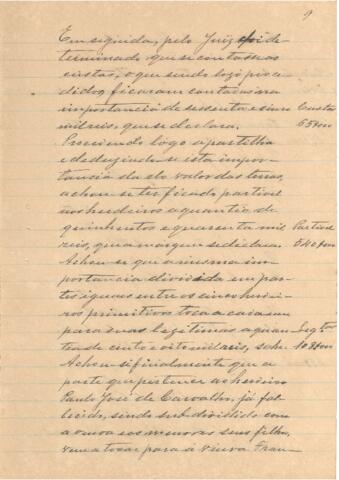 9
Em seguida, pelo Juiz foi de-
terminado que se contassem as
custas, o que sendo logo proce-
dido, ficaram contadas na
importancia de sessenta e cinco Custas
mil reis, que se declara. 65$000
Procedendo logo a partilha
e dedusindo-se esta impor-
tancia da do valor das terras,
achou-se ter ficado partivel
aos herdeiros a quantia de
quinhentos e quarenta mil Partivel
reis, que a margem se declara. 540$000
Achou-se que a mesma im-
portancia dividida em par-
tes iguaes entre os cinco herdei-
ros primitivos toca a cada um
para suas legitimas a quan- Legtas
tia de cento e oito mil reis, 108$000
Achou-se finalmente que a
parte que pertence ao herdeiro
Paulo José de Carvalho, já fal-
lecido, sendo subdividido com
a viuva e os menores seus filhos,
vem a tocar para á viuva Fran-